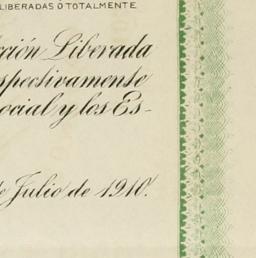 LIBERADAS Ó TOTALMENTE
cción Liberada
espectivamente
ocial y los Es-
de Julio de 1910.